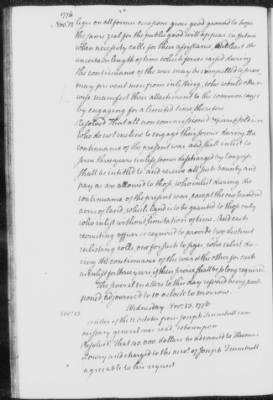 1776
Nov. 12
leges on all former occasions given good grounds to hope
the same zeal for the public good will appear in future
when necessity calls for their assistance, and that the
uncertain length of time which forces raised during
the continuance of the war may be compelled to serve
may prevent many from inlisting, who would other
wise manifest their attachment to the common cause
by engaging for a limited time, therefore
Resolved That all non commissioned officers & soldiers
who do not incline to engage their service during the
continuance of the present war and shall inlist to
serve three years unless sooner discharged by Congress
shall be entitled to and receive all such bounty and
pay as are allowed to those who inlist during the
continuance of the present war, except the one hundred
acres of land, which land is to be granted to those only
who inlist without limitation of time. And each
recruiting officer is required to provide two distinct
inlisting rolls, one for such to sign, who inlist du
ring the continuance of the war & the other for such
as inlist for three years if their service shall be so long required
The several matters to this day referred being post
poned adjourned to 10 oClock to morrow
Wednesday Nov. 13. 1776
Nov. 13
A letter of the October from Joseph Trumbull com
missary general was read. Whereupon
Resolved That dollars be advanced to
Lowry and charged to the acct. of Joseph Trumbull
agreeable to his request